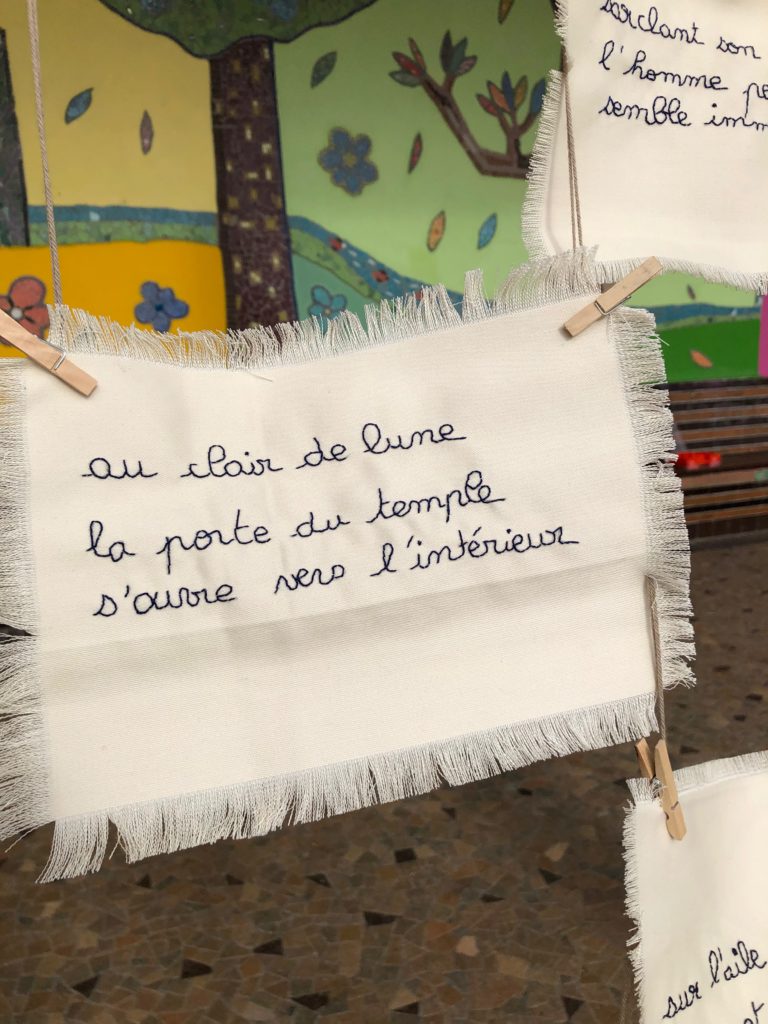 sarclant son
l'homme
semble
au clair de lune
la porte du temple
s'ouvre vers l'intérieur
sur l'aile